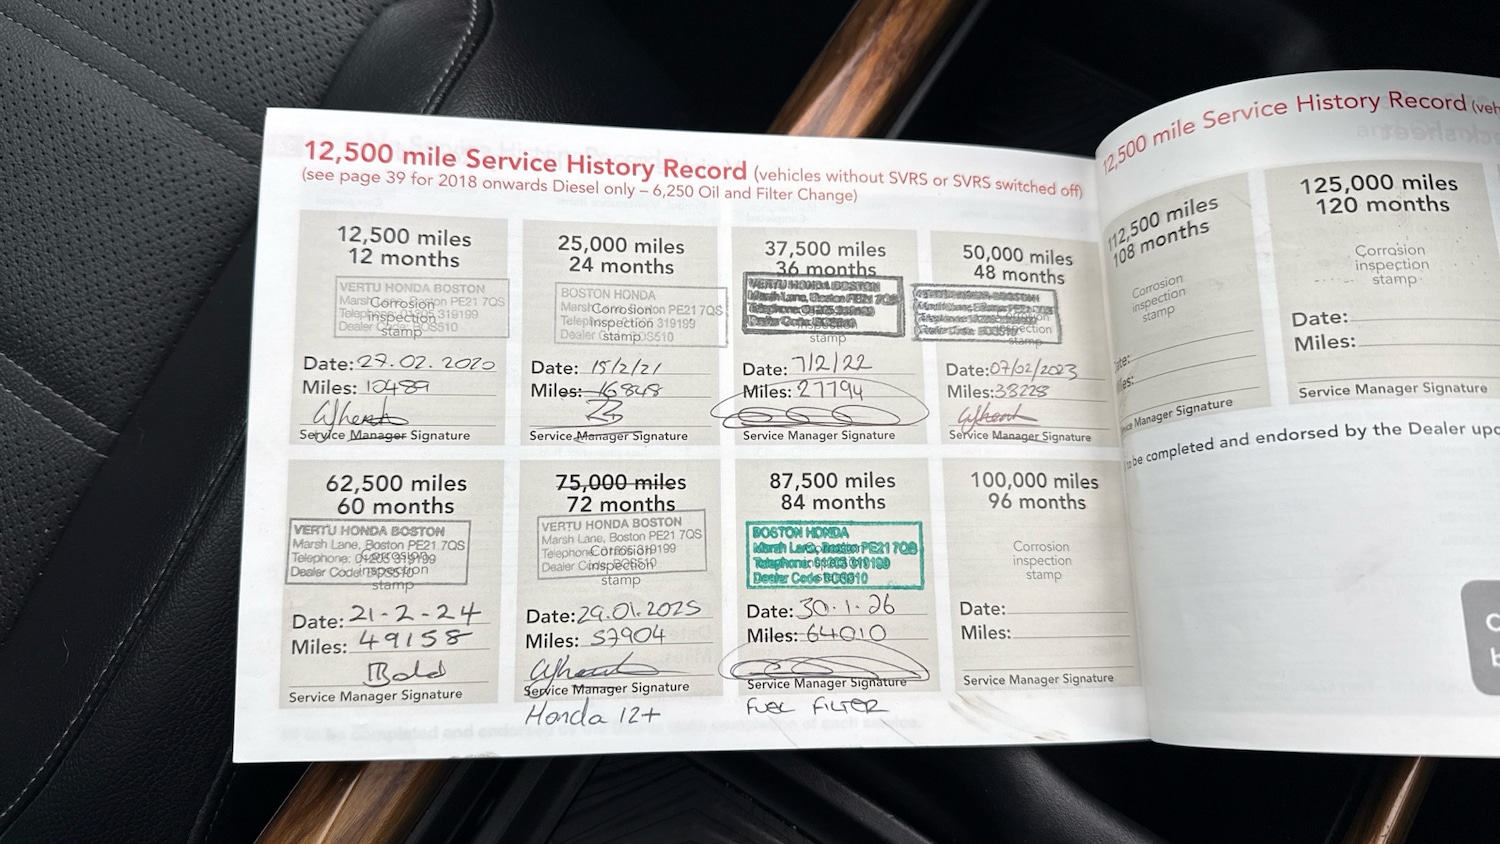 12,500 mile Service History Record (vehicles without SVRS or SVRS switched off)
(see page 39 for 2018 onwards Diesel only – 6,250 Oil and Filter Change)
12,500 miles
12 months
VERTU HONDA BOSTON
Marsh Lane, Boston PE21 7QS
Telephone: 01205 319199
Dealer Code: BOS510
Corrosion
inspection
stamp
Date: 27.02.2020
Miles: 10489
Service Manager Signature
25,000 miles
24 months
BOSTON HONDA
Marsh Lane, Boston PE21 7QS
Telephone: 01205 319199
Dealer Code: BOS510
Corrosion
inspection
stamp
Date: 15/2/21
Miles: 16848
Service Manager Signature
37,500 miles
36 months
VERTU HONDA BOSTON
Marsh Lane, Boston PE21 7QS
Telephone: 01205 319199
Dealer Code: BOS510
stamp
Date: 7/2/22
Miles: 27794
Service Manager Signature
50,000 miles
48 months
stamp
Date: 07/02/2023
Miles: 38228
Service Manager Signature
62,500 miles
60 months
VERTU HONDA BOSTON
Marsh Lane, Boston PE21 7QS
Telephone: 01205 319199
Dealer Code: BOS510
Corrosion
inspection
stamp
Date: 21-2-24
Miles: 49158
Service Manager Signature
75,000 miles
72 months
VERTU HONDA BOSTON
Marsh Lane, Boston PE21 7QS
Telephone: 01205 319199
Dealer Code: BOS510
Corrosion
inspection
stamp
Date: 29.01.2025
Miles: 57904
Service Manager Signature
Honda 12+
87,500 miles
84 months
BOSTON HONDA
Marsh Lane, Boston PE21 7QS
Telephone: 01205 319199
Dealer Code BOS510
Date: 30.1.26
Miles: 64010
Service Manager Signature
FUEL FILTER
100,000 miles
96 months
Corrosion
inspection
stamp
Date:
Miles:
Service Manager Signature
12,500 mile Service History Record (veh
112,500 miles
108 months
Corrosion
inspection
stamp
ate:
es:
Manager Signature
125,000 miles
120 months
Corrosion
inspection
stamp
Date:
Miles:
Service Manager Signature
to be completed and endorsed by the Dealer upo